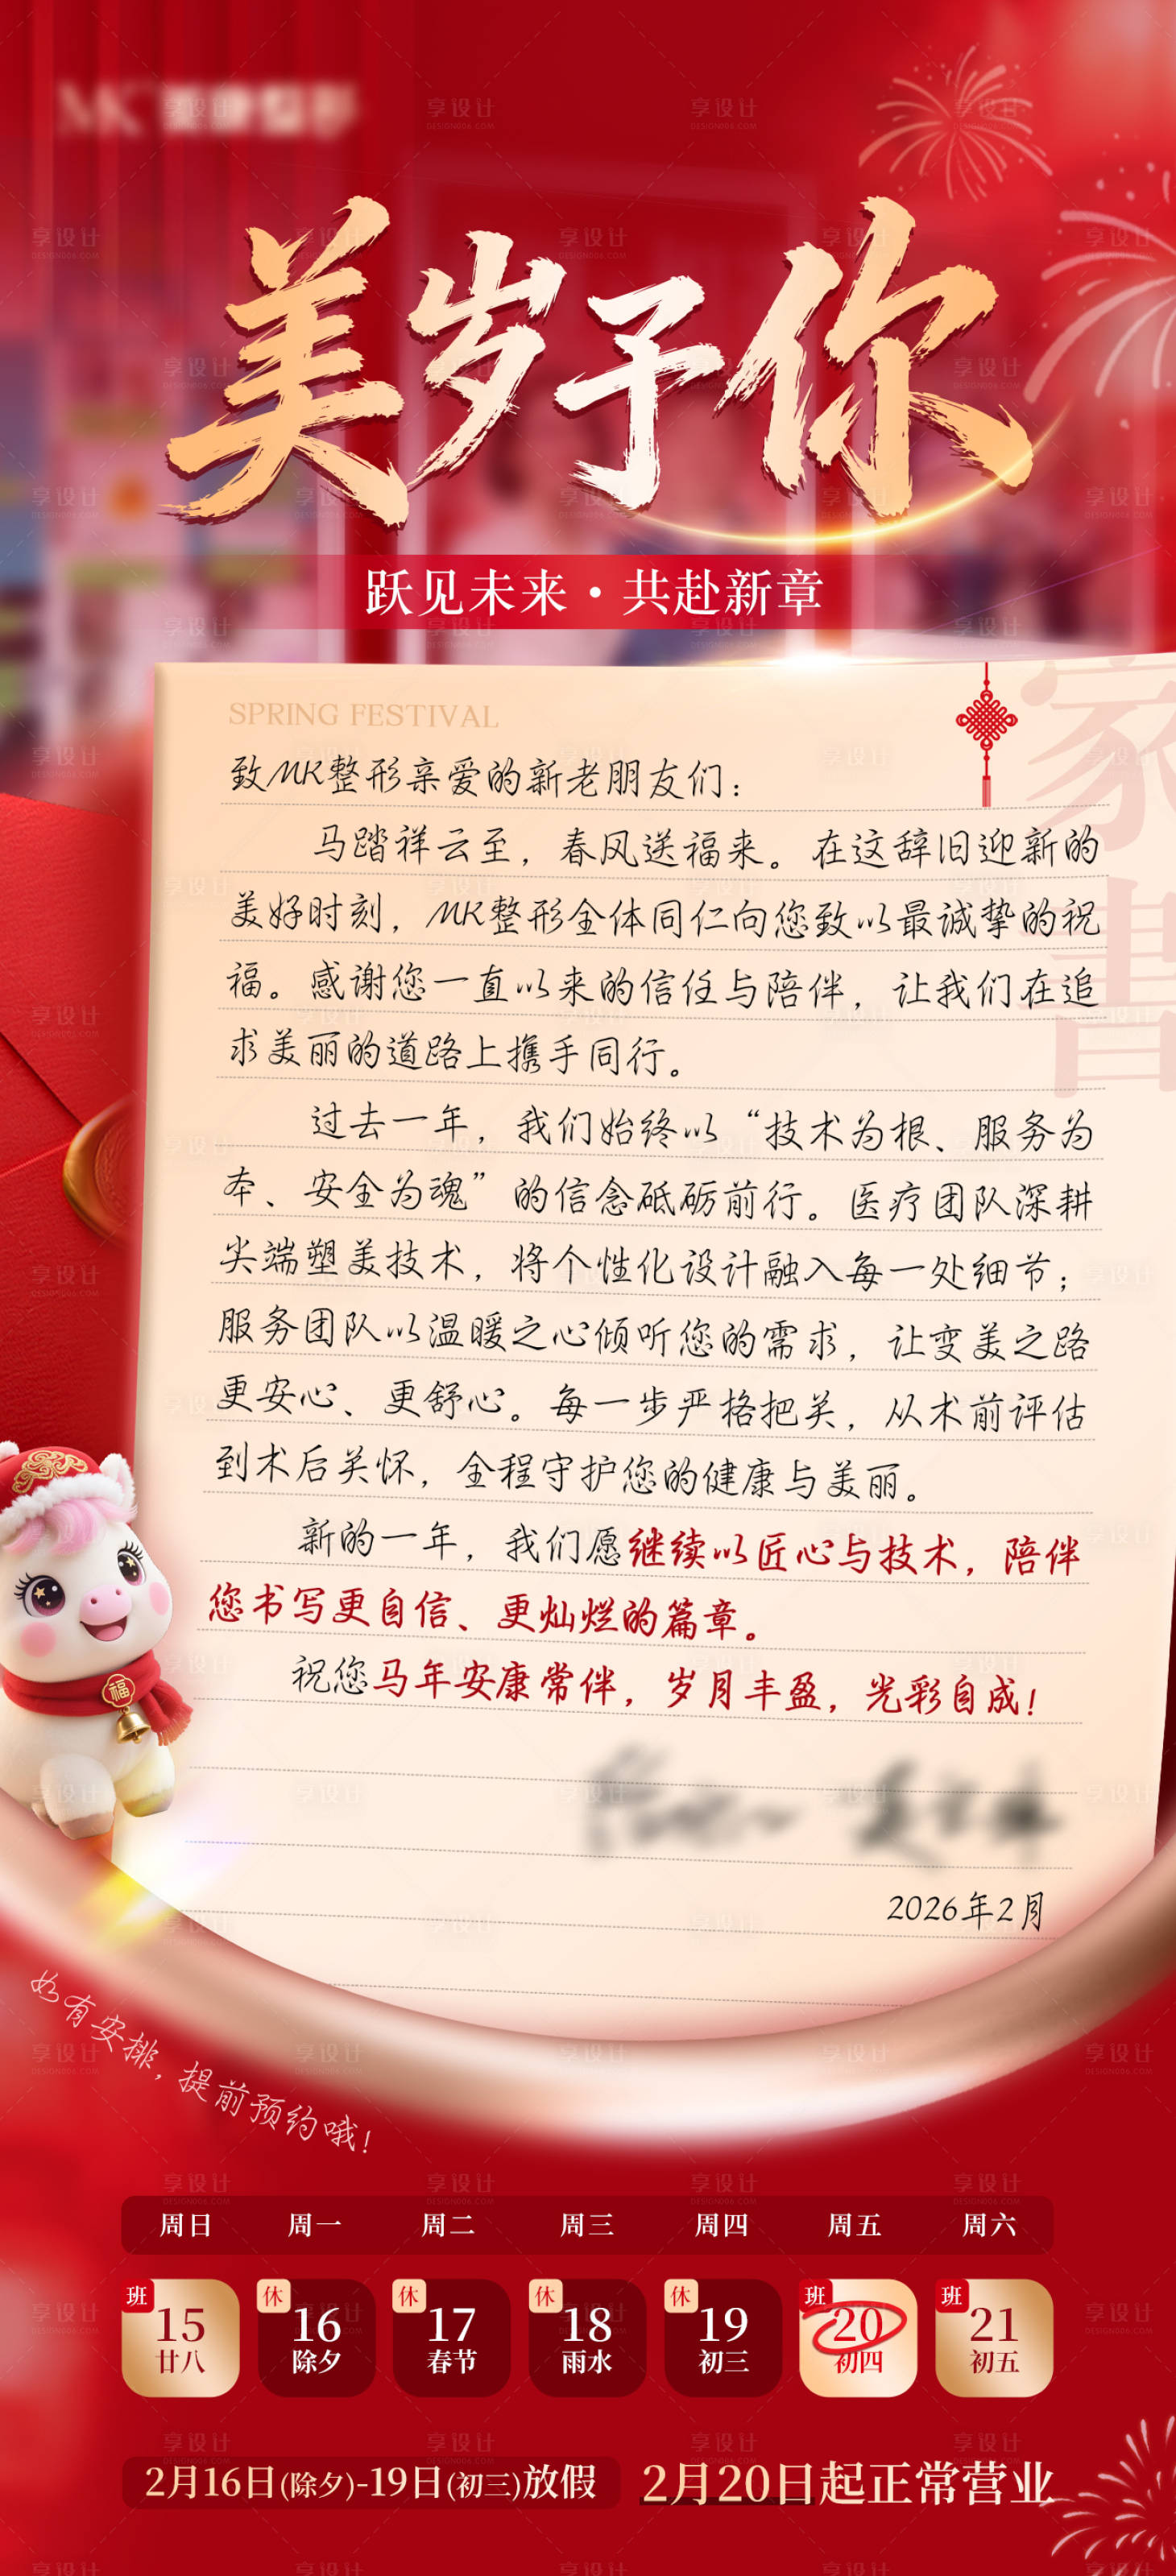 美岁予你
跃见未来·共赴新章
SPRING FESTIVAL
家書
致MK整形亲爱的新老朋友们：
马踏祥云至，春风送福来。在这辞旧迎新的
美好时刻，MK整形全体同仁向您致以最诚挚的祝
福。感谢您一直以来的信任与陪伴，让我们在追
求美丽的道路上携手同行。
过去一年，我们始终以“技术为根、服务为
本、安全为魂”的信念砥砺前行。医疗团队深耕
尖端塑美技术，将个性化设计融入每一处细节；
服务团队以温暖之心倾听您的需求，让变美之路
更安心、更舒心。每一步严格把关，从术前评估
到术后关怀，全程守护您的健康与美丽。
新的一年，我们愿继续以匠心与技术，陪伴
您书写更自信、更灿烂的篇章。
祝您马年安康常伴，岁月丰盈，光彩自成！
福
2026年2月
如有安排，提前预约哦！
周日 周一 周二 周三 周四 周五 周六
班 休 休 休 休 班 班
15 16 17 18 19 20 21
廿八 除夕 春节 雨水 初三 初四 初五
2月16日(除夕)-19日(初三)放假 2月20日起正常营业
享设计
DESIGN006.COM